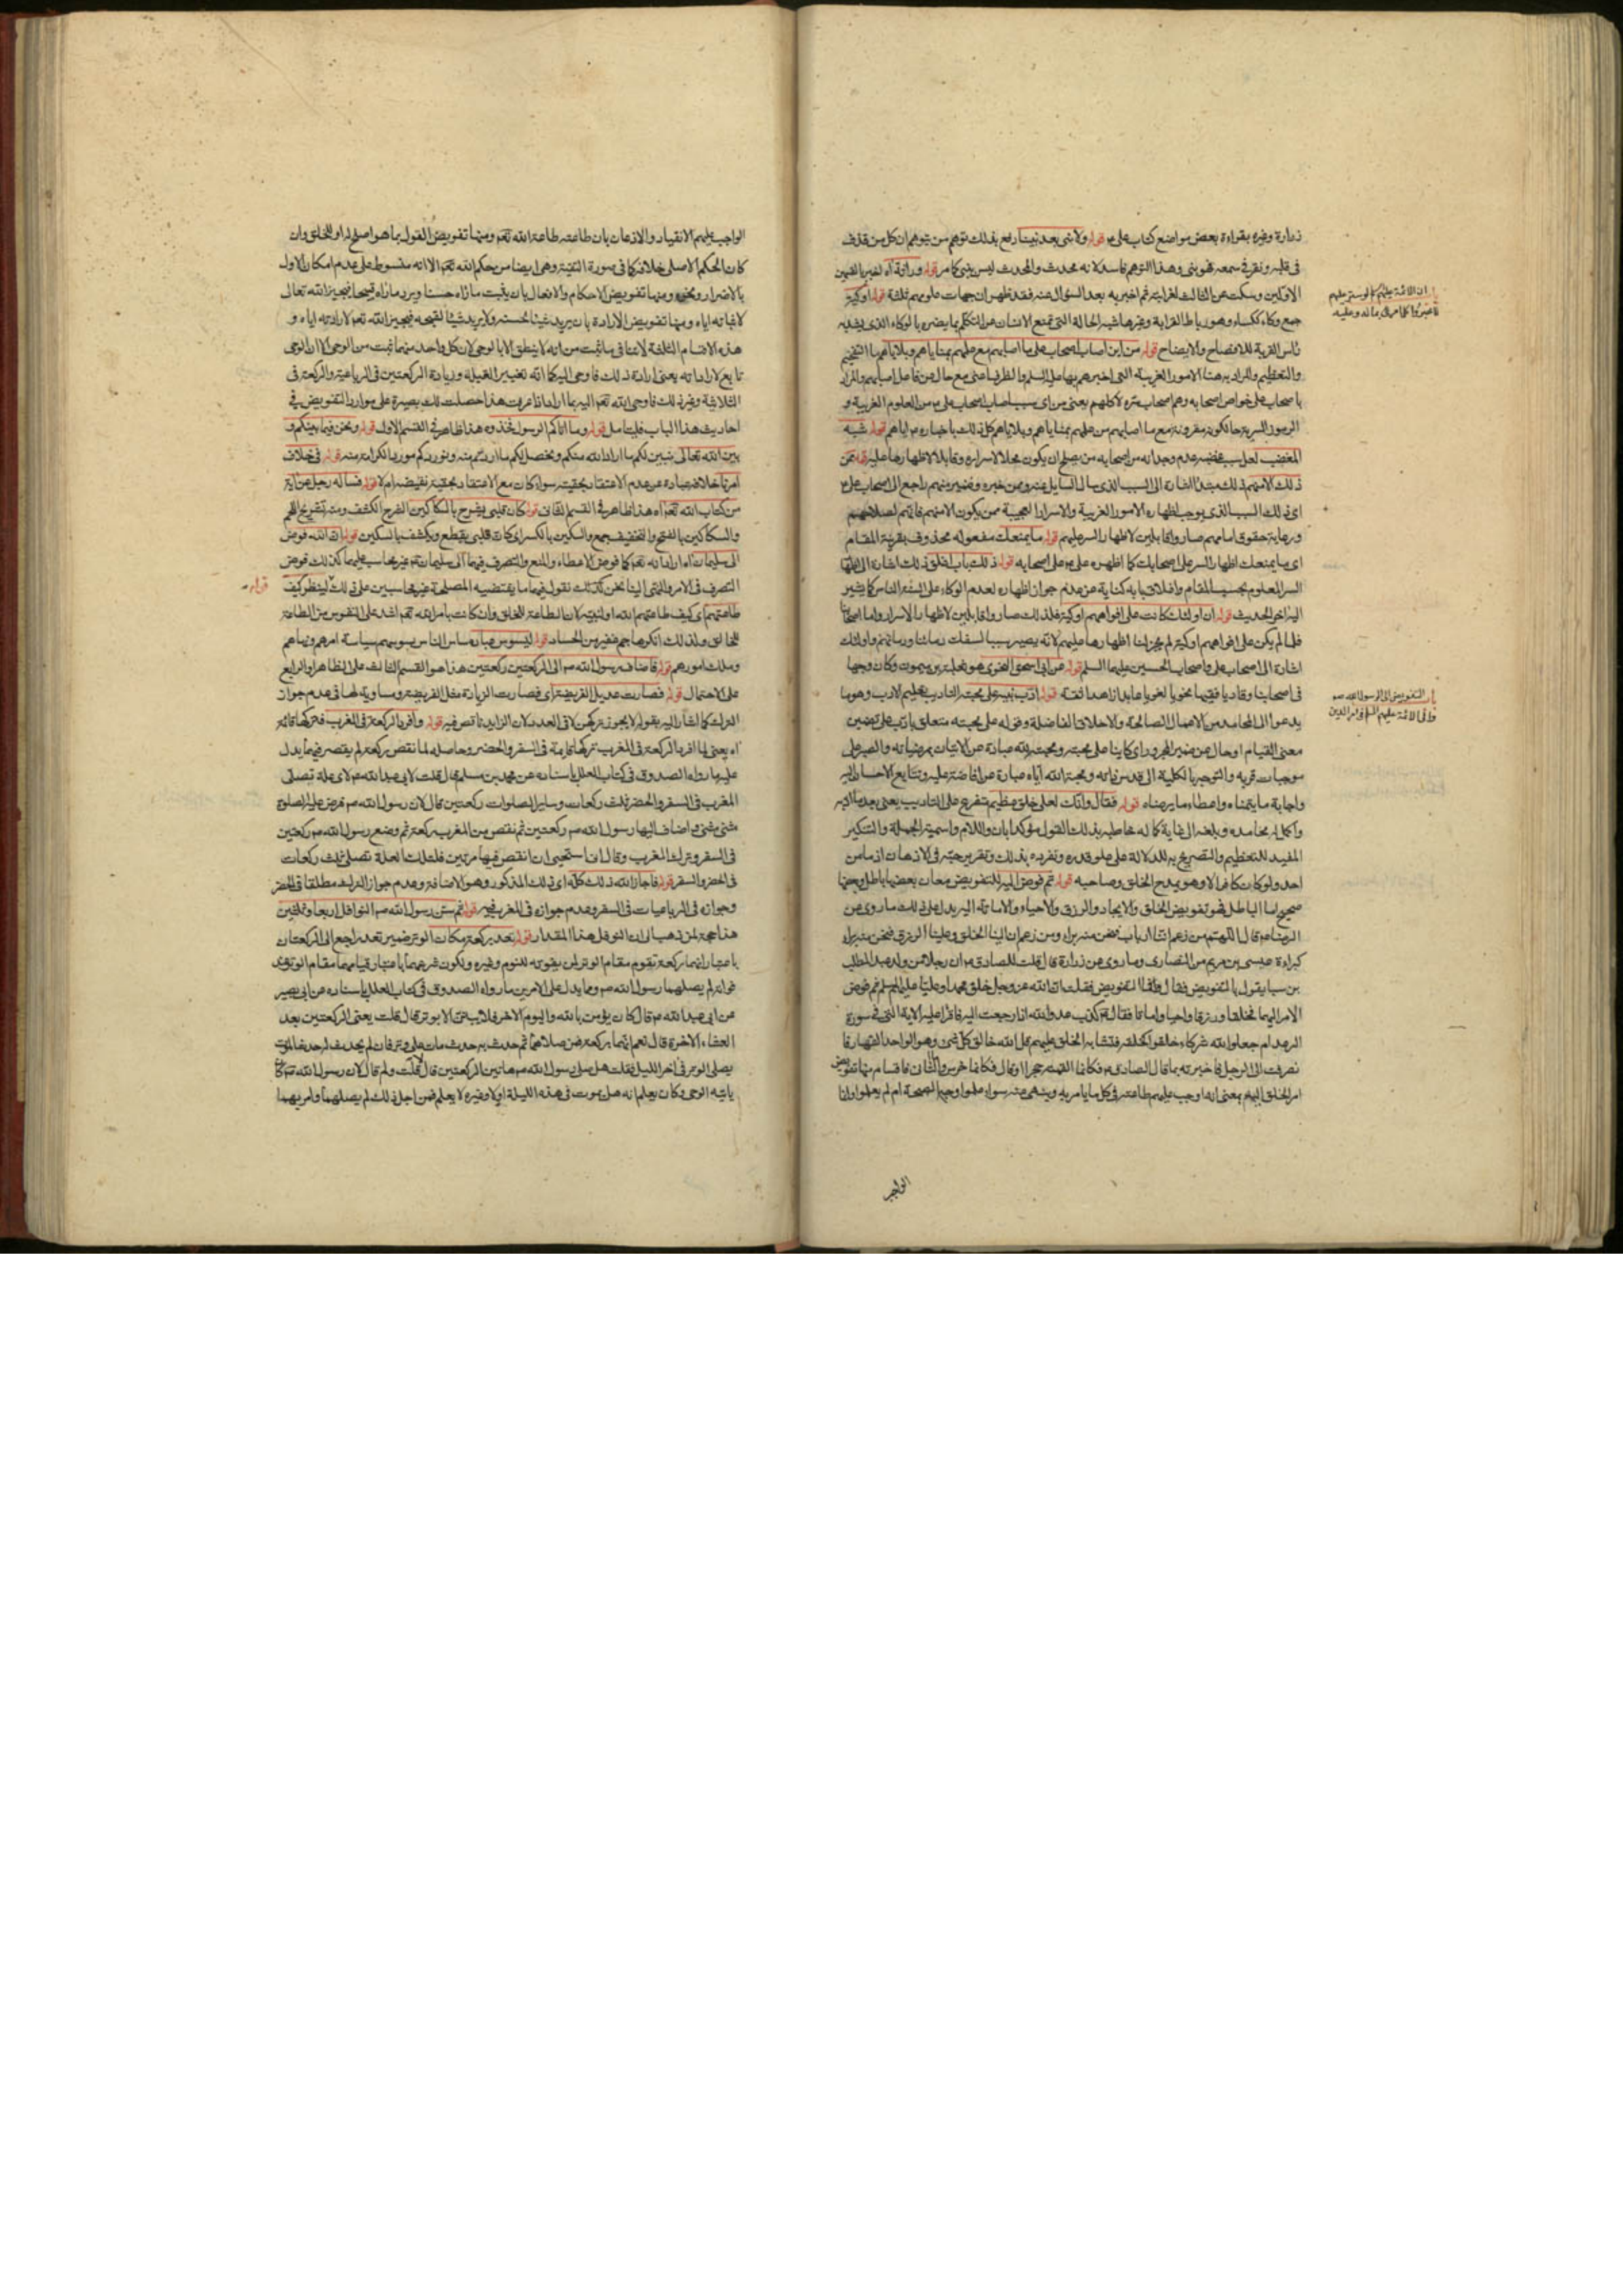 زرارة وغيره بقراءة بعض مواضع كتاب على ع قوله ولا نبى بعد نبينا رفع بذلك توهم من يتوهم ان كل من قذف
فى قلبه ونقر فى سمعه فهو نبى وهذا التوهم فاسد لانه محدث والمحدث ليس بنبى كما مر قوله وراثة آه
الاولين وسكت عن الثالث لغرابته ثم اخبر به بعد السؤال عنه فقد ظهر ان جهات علومهم ثلثة قوله اوكية
ان الائمة عليهم لو ستر عليهم
لاخبروا كل امرئ بما له وعليه
جمع وكاء ككساء وهو رباط القرابة وغيرها شبه الحالة التى تمنع الانسان من التكلم بما يضره بالوكاء الذى يشد به
راس القربة للافصاح والايضاح قوله من اين اصاب اصحاب على ما اصابهم مع علمهم بمناياهم وبلاياهم ما التفخيم
والتعظيم والمراد به هنا الامور الغريبة التى اخبرهم بها عليه السلم والظرف اعنى مع حال من فاعل اصابهم والمراد
باصحاب على خواص اصحابه وهم اصحاب سره لا كلهم يعنى من اى سبب اصاب اصحاب على ع من العلوم الغريبة و
الرموز السرية حالكونه مقرونة مع ما اصابهم من علمهم بمناياهم وبلاياهم كل ذلك باخباره ع اياهم قوله شبه
المغضب لعل سبب غضبه عدم وجدانه من اصحابه من يصلح ان يكون محلا لاسراره وقابلا لاظهارها عليه قوله ممن
ذلك الا منهم ذلك مبتدا اشارة الى السبب الذى سال السايل عنه وممن خبره وضمير منهم راجع الى اصحاب على ع
اى ذلك السبب الذى يوجب اظهاره الامور الغريبة والاسرار العجيبة ممن يكون الا منهم فانهم لصلاحهم
ورعاية حقوق امامهم صاروا قابلين لاظهار السر عليهم قوله ما يمنعك مفعوله محذوف بقرينة المقام
اى ما يمنعك اظهار السر على اصحابك كما اظهره على ع على اصحابه قوله ذلك باب اغلق ذلك اشارة الى اظهار
السر المعلوم بحسب المقام واغلاق بابه كناية عن عدم جواز اظهاره لعدم الوكاء على السنة الناس كما يشير
اليه اخر الحديث قوله ان اولئك كانت على افواههم اوكية فلذلك صاروا قابلين لاظهار الاسرار واما اصحابنا
فلما لم يكن على افواههم اوكية لم يجز لنا اظهارها عليهم لانه يصير سببا لسفك دمائنا ودمائهم واولئك
اشارة الى اصحاب على واصحاب الحسين عليهما السلم قوله عن ابى اسحق النحوى هو ثعلبة بن ميمون وكان وجها
فى اصحابنا وقاريا فقيها نحويا لغويا عابدا زاهدا ثقة قوله ادب نبيه على محبته التاديب تعليم الادب وهو ما
باب التفويض الى الرسول الله ص
والى الائمة عليهم السلم فى امر الدين
يدعو الى المحامد من الاعمال الصالحة والاخلاق الفاضلة وقوله على محبته متعلق بادب على تضمين
معنى القيام او حال من ضمير المجرور اى كاينا على محبته ومحبته لله عبارة عن الاتيان بمرضياته والصبر على
موجبات قربه والتوجه بالكلية الى قدس ذاته ومحبة الله اياه عبارة عن افاضته عليه وتتابع الاحسان اليه
واجابة ما يتمناه واعطاء ما يرضاه قوله فقال وانك لعلى خلق عظيم تفرع على التاديب يعنى بعد ما ادبه
واكمل له محامده وبلغه الى غاية كماله خاطبه بذلك القول مؤكدا بان واللام واسمية الجملة والتنكير
المفيد للتعظيم والتصريح به للدلالة على علو قدره وتفرده بذلك وتقرير حبه فى الاذهان اذ ما من
احد ولو كان كافرا الا وهو يمدح الخلق وصاحبه قوله ثم فوض اليه للتفويض معان بعضها باطل وبعضها
صحيح اما الباطل فهو تفويض الخلق والايجاد والرزق والاحياء والاماتة اليه يدل على ذلك ما روى عن
الرضا ع قال اللهم من زعم انا ارباب فنحن منه براء ومن زعم ان الينا الخلق وعلينا الرزق فنحن منه براء
كبراءة عيسى بن مريم من النصارى وما روى عن زرارة قال قلت للصادق ع ان رجلا من ولد عبد المطلب
بن سبا يقول بالتفويض فقال وما التفويض فقلت ان الله عز وجل خلق محمدا وعليا عليهما السلم ثم فوض
الامر اليهما فخلقا ورزقا واحيا واماتا فقال ع كذب عدو الله اذا رجعت اليه فاقرا عليه الاية التى فى سورة
الرعد ام جعلوا لله شركاء خلقوا كخلقه فتشابه الخلق عليهم قل الله خالق كل شئ وهو الواحد القهار فا
نصرفت الى الرجل فاخبرته بما قال الصادق ع فكانما القمته حجرا او قال فكانما خرس والثان فاقسام منها تفويض
امر الخلق اليه بمعنى انه اوجب عليهم طاعته فى كل ما يامر به وينهى عنه سواء علموا وجه الصحة ام لم يعلموا وانما
الواجب
الواجب عليهم الانقياد والاذعان بان طاعته طاعة الله تعم ومنها تفويض القول بما هو اصلح له او للخلق وان
كان الحكم الاصلى خلافه كما فى صورة التقية وهى ايضا من حكم الله تعم الا انه منسوط على عدم امكان الاول
بالاضرار ونحوه ومنها تفويض الاحكام والافعال بان يثبت ما راه حسنا ويرد ما راه قبيحا فيجيزه الله تعالى
لاثباته اياه ومنها تفويض الارادة بان يريد شيئا لحسنه ولا يريد شيئا لقبحه فيجيزه الله تعم لارادته اياه و
هذه الاقسام الثلثة لا تنافى ما ثبت من انه لا ينطق الا بالوحى لان كل واحد منها ثبت من الوحى الا ان الوحى
تابع لارادته يعنى اراد ذلك فاوحى اليه كما انه تغيير القبلة وزيادة الركعتين فى الرباعية والركعة فى
الثلاثية وغير ذلك فاوحى الله تعم اليه بما اراد اذا عرفت هذا حصلت لك بصيرة على موارد التفويض فى
احاديث هذا الباب فليتامل قوله وما اتاكم الرسول فخذوه هذا ظاهر فى القسم الاول قوله ونحن فيما بينكم و
بين الله تعالى نبين لكم ما اراد الله منكم ونحصل لكم ما اردتم منه ونوردكم موارد الكرامة منه قوله فى خلاف
امرنا خلافه عبارة عن عدم الاعتقاد بحقيته سواء كان مع الاعتقاد بحقية نقيضه ام لا قوله فساله رجل عن اية
من كتاب الله تعم آه هذا ظاهر فى القسم الثانى قوله كان قلبى يشرح بالسكاكين الشرح الكشف ومنه تشريح اللحم
والسكاكين بالفتح والتخفيف جمع والسكين بالكسر اى كان قلبى يقطع ويكشف بالسكين قوله ان الله فوض
الى سليمان اه اراد انه تعم كما فوض الاعطاء والمنع والتصرف فيهما الى سليمان ع غير محاسب عليهما كذلك فوض
التصرف فى الامر والنهى الينا نحن كذلك نقول فيهما ما يقتضيه المصلحة غير محاسبين على ذلك لينظر كيف
قوله
طاعتهم اى كيف طاعتهم الله او لنبيه لان الطاعة للخلق وان كانت بامر الله تعم اشد على النفوس من الطاعة
للخالق ولذلك انكرها جم غفير من الحساد قوله ليسوس عباده ساس الناس يسوسهم سياسة امرهم ونهاهم
وملك امورهم قوله فاضاف رسول الله ص الى الركعتين ركعتين هذا هو القسم الثالث على الظاهر او الرابع
على الاحتمال قوله فصارت عديل الفريضة اى فصارت الزيادة مثل الفريضة ومساوية لها فى عدم جواز
الترك كما اشار اليه بقوله لا يجوز تركهن لا فى العدد لان الزايد ناقص فيه قوله وافرد الركعة فى المغرب فتركها قائمة
اه يعنى لما افرد الركعة فى المغرب تركها قايمة فى السفر والحضر وحاصله لما نقص ركعة لم يقصر فيها يدل
عليه ما رواه الصدوق فى كتاب العلل باسناده عن محمد بن مسلم قال قلت لابى عبد الله ع لاى علة تصلى
المغرب فى السفر والحضر ثلث ركعات وساير الصلوات ركعتين قال لان رسول الله ص فرض عليه الصلوة
مثنى مثنى واضاف اليها رسول الله ص ركعتين ثم نقص من المغرب ركعة ثم وضع رسول الله ص ركعتين
فى السفر وترك المغرب وقال انى استحيى ان انقص فيها مرتين فلتلك العلة تصلى ثلث ركعات
فى الحضر والسفر قوله فاجاز الله ذلك كله اى ذلك المذكور وهو الاضافة وعدم جواز الترك مطلقا فى الحضر
وجوازه فى الرباعيات فى السفر وعدم جوازه فى المغرب فيه قوله ثم سن رسول الله ص النوافل اربعا وثلثين
هذا حجة لمن ذهب الى ان النوفل هذا المقدار قوله تعد بركعة مكان الوتر ضمير تعد راجع الى الركعتان
باعتبار انهما ركعة تقوم مقام الوتر لمن يفوته للنوم وغيره ولكون شرعهما باعتبار قيامهما مقام الوتر
فواته لم يصلهما رسول الله ص وما يدل على الامرين ما رواه الصدوق فى كتاب العلل باسناده عن ابى بصير
عن ابى عبد الله ع قال من كان يؤمن بالله واليوم الاخر فلا يبيتن الا بوتر قال قلت يعنى الركعتين بعد
العشاء الاخرة قال نعم انهما بركعة فمن صلاهما ثم حدث به حدث مات على وتر فان لم يحدث به حدث الموت
يصلى الوتر فى اخر الليل فقلت هل صلى رسول الله ص هاتين الركعتين قال لا قلت ولم قال لان رسول الله ص كان
ياتيه الوحى وكان يعلم انه هل يموت فى هذه الليلة او لا وغيره لا يعلم فمن اجل ذلك لم يصلهما وامر بهما